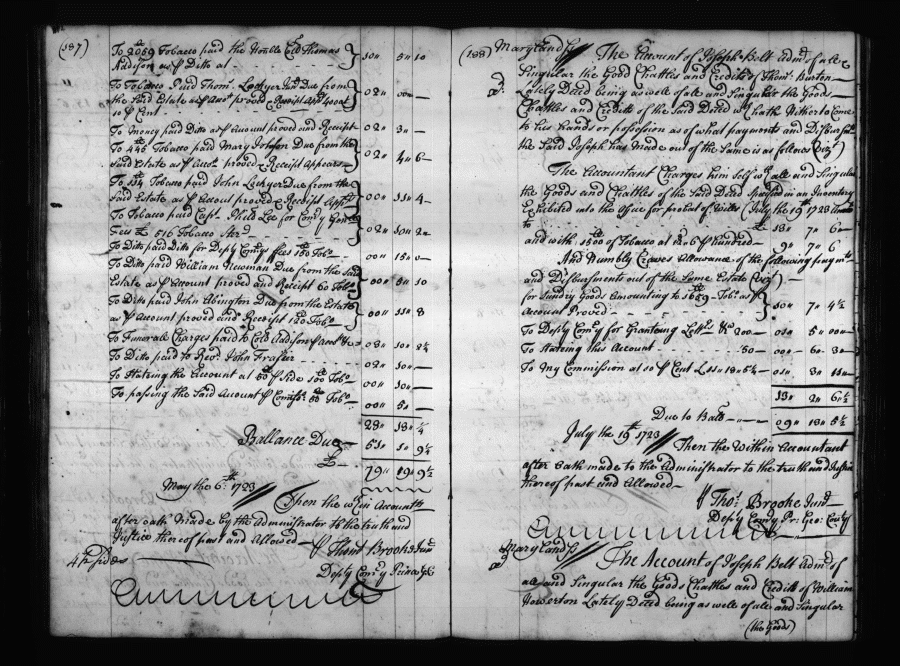 (187)
To 2059 Tobacco paid the Honble Coll Thomas
Addison as P Ditto at 10" 5" 10
To Tobacco Paid Thoms. Lockyer Due from
the Said Estate as P Acco proved Receipt
10 P Cent 02" 00" —
To money paid Ditto as P Account proved and Receipt 02" 3" —
To 446 Tobacco paid Mary Johnson Due from the
Said Estate as P Acco. proved & Receipt Appears 02" 4" 6
To 114 Tobacco paid John Lockyer Due from the
Said Estate, as P Account proved & Receipt 00" 11" 4
To Tobacco paid Capt. Phill Lee for Comry Genll
Fees 516 Tobacco 02" 10"
To Ditto paid Ditto for Depty Comry ffees 150 Tobo. 00" 15" 0
To Ditto paid William Newman Due from the Said
Estate as P Account proved and Receipt 60 Tobo 00" 5" 10
To Ditto paid John Abington Due from the Estate
as P Account proved and Receipt 120 Tobo 00" 11" 8
To Funerall Charges paid to Coll Addison P 08" 10" 2¼
To Ditto paid to Revd. John Frasier 02" 10" —
To Stateing the Account at 50 P Side 100 Tobo 00" 10" —
To passing the Said Account P Comisr. 50 Tobo 00" 5" —
28" 18" ¼
Ballance Due 51" 1" 9¼
79" 19" 9½
May the 6th. 1723 Then the wthin Accountt
after oath made by the Administrator to the truth and
Justice thereof past and Allowed P Thoms Brooke Junr
4 P sides Depty Comry Prince Geo
(188) Maryland ss The Account of Joseph Belt Admr of all &
Singular the Good Chattles and Credits of Thoms. Burton
Lately Deced being as well of all and Singular the Goods
Chattles and Credits of the Said Deced wch hath hitherto Come
to his hands or possession as of what payments and
the Said Joseph has Made out of the Same is as follows (vizt)
The Accountant Charges him Self with all and Singular
the Goods and Chattles of the Said Deced Specified in an Inventory
Exhibited into the Office for probat of Wills (July the 19th 1723
to 13" 7" 6
and with 1500 of Tobacco at P hundred 9" 7" 6
And Humbly Craves Allowance of the following paymts
and Disbursments out of the Same Estate (vizt)
for Sundry Goods Amounting to 1659 Tobo as P
Account Proved 10" 7" 4½
To Depty Comry for Granteing Lettrs &c 200 01" 5" 00
To Stateing this Account 50 00" 6" 3
To My Commission at 10 P Cent 01" 3" 10
13" 2" 6½
Due to Ball 09" 18" 5½
July the 19th 1723 Then the Within Accountant
after oath made to the Administrator to the truth and Justice
thereof past and Allowed
P Thos. Brooke Junr
Depty Comry Pr: Geo: County
Maryland ss The Account of Joseph Belt Admr of
all and Singular the Goods Chattles and Credits of William
Howerton Lately Deced being as well of all and Singular
(the Goods)